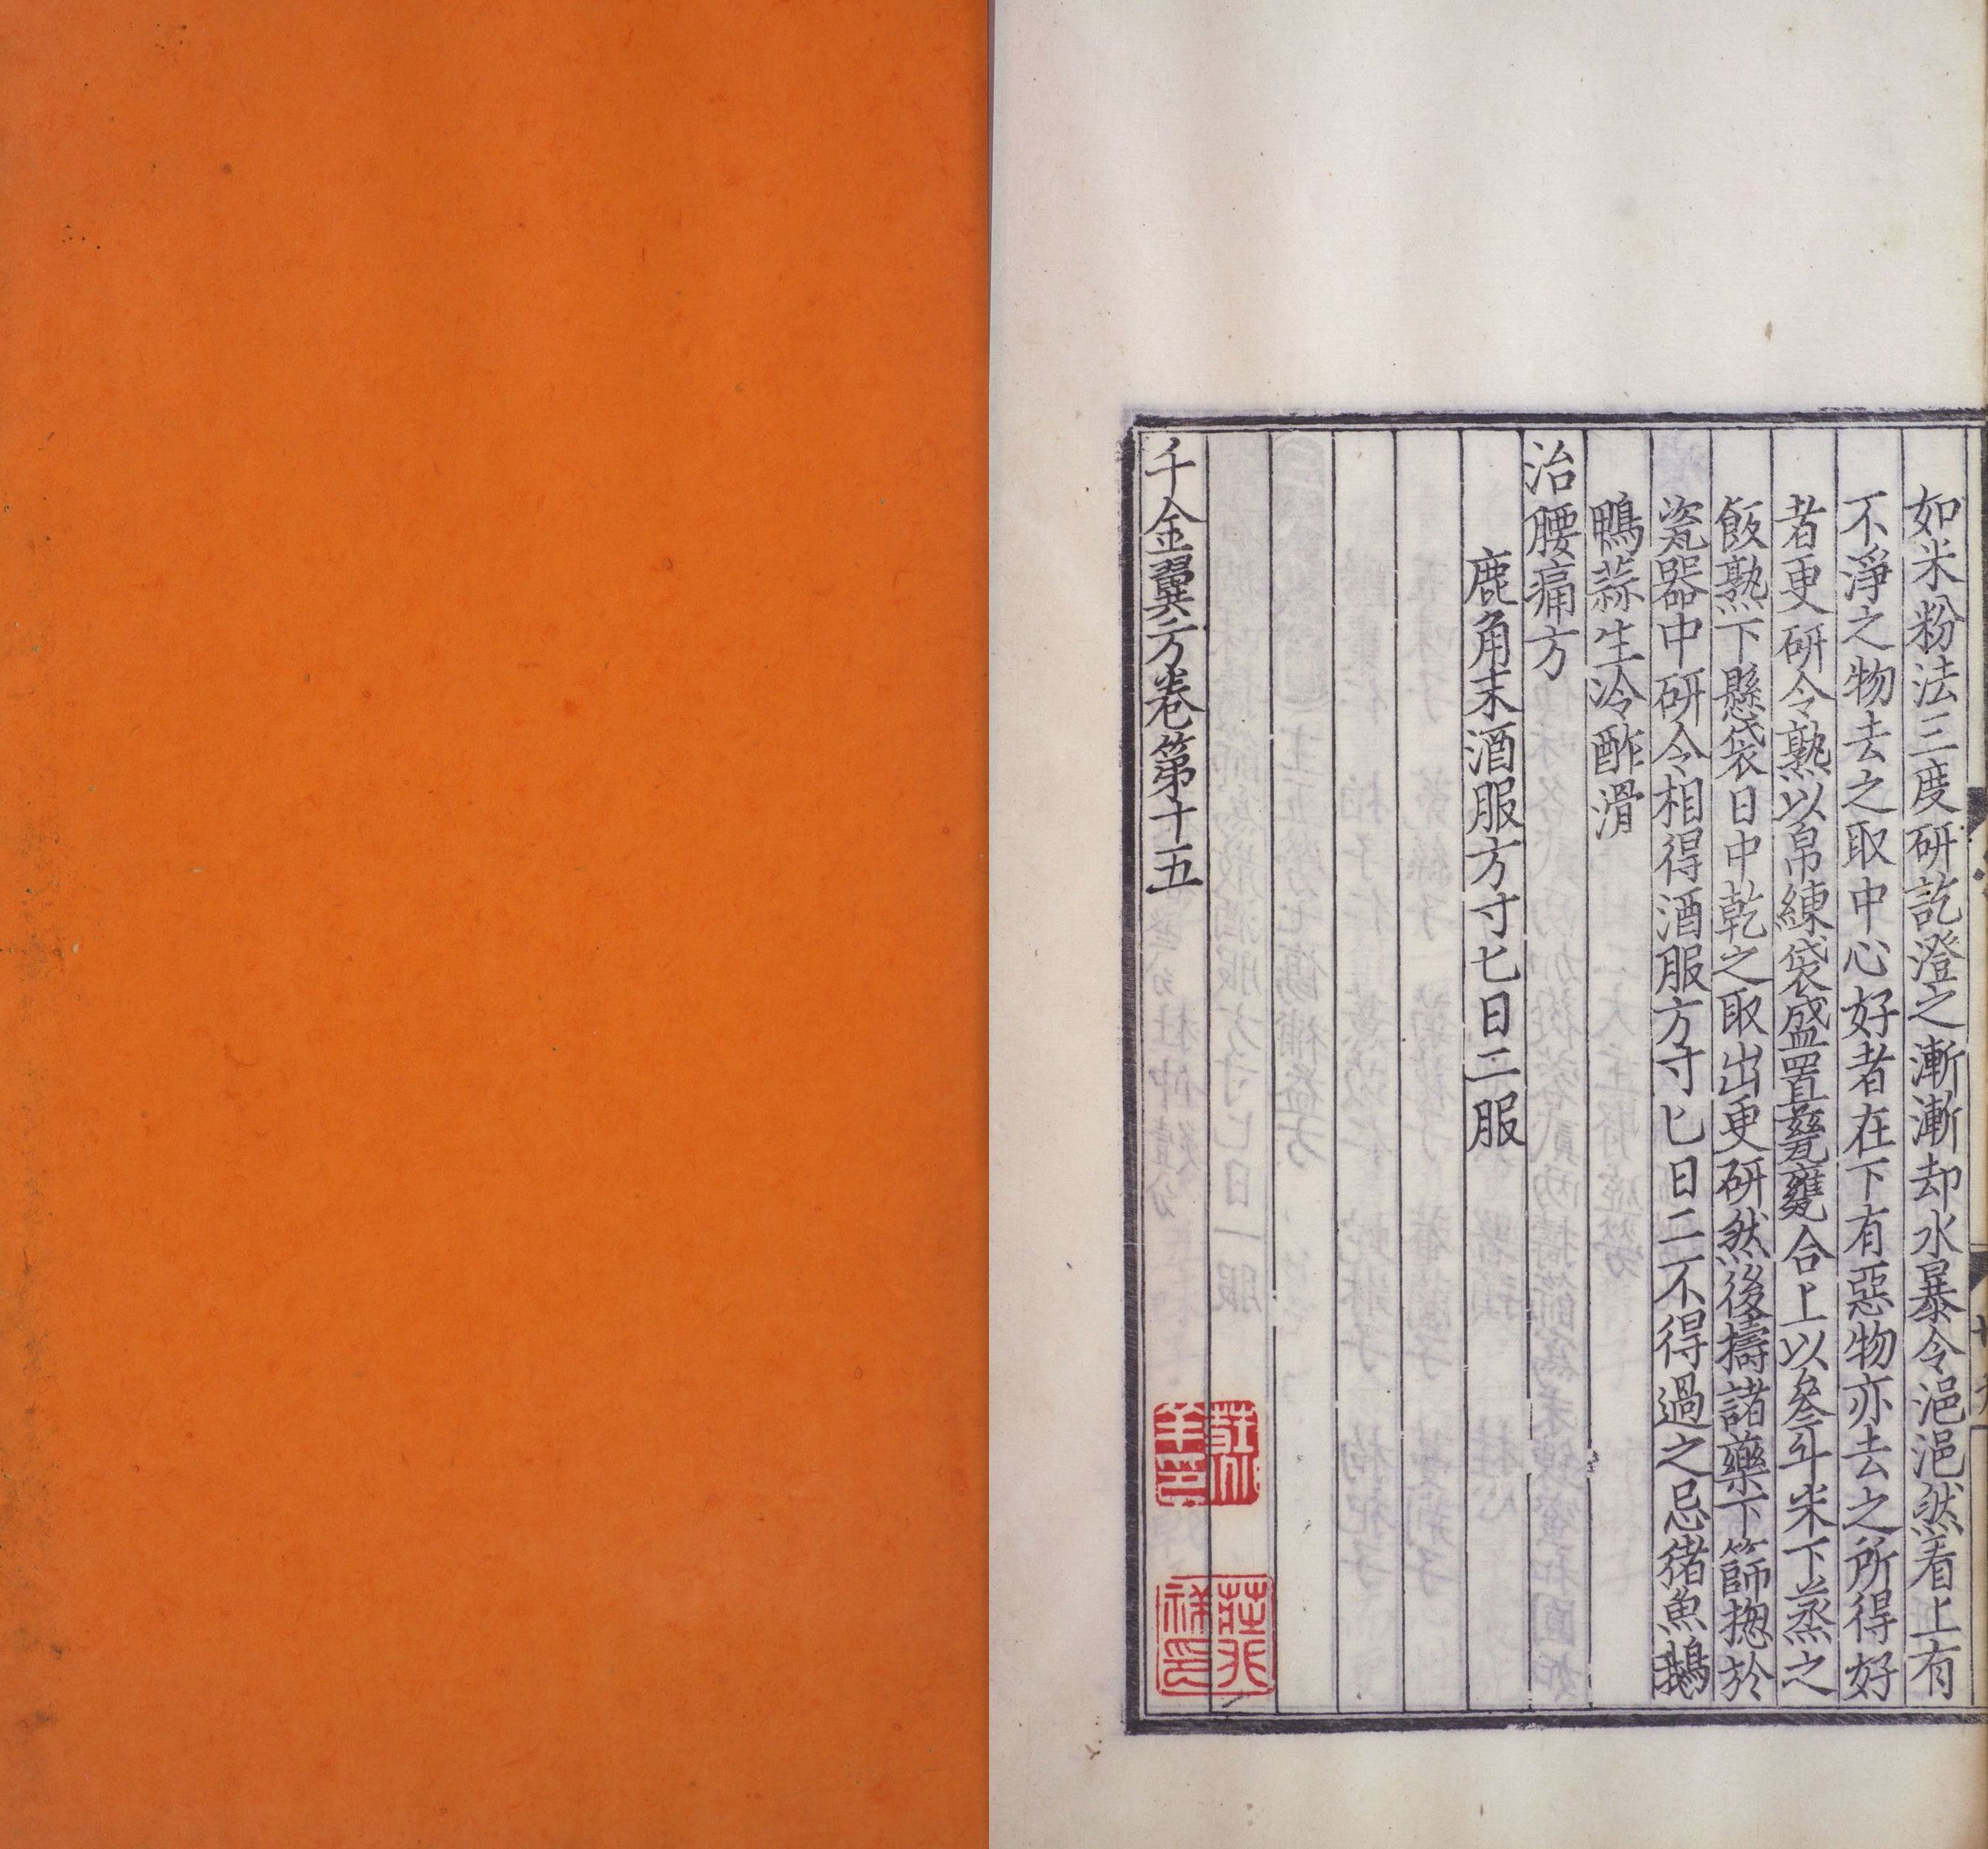 如米粉法三度研訖澄之漸漸却水暴令浥浥然看上有
不淨之物去之取中心好者在下有惡物亦去之所得好
者更研令熟以帛練袋盛置甆甕合上以叄斗米下蒸之
飯熟下懸袋日中乾之取出更研然後擣諸藥下篩揔於
瓷器中研令相得酒服方寸匕日二不得過之忌猪魚鵝
鴨蒜生冷酢滑
治腰痛方
鹿角末酒服方寸匕日二服
千金翼方卷第十五